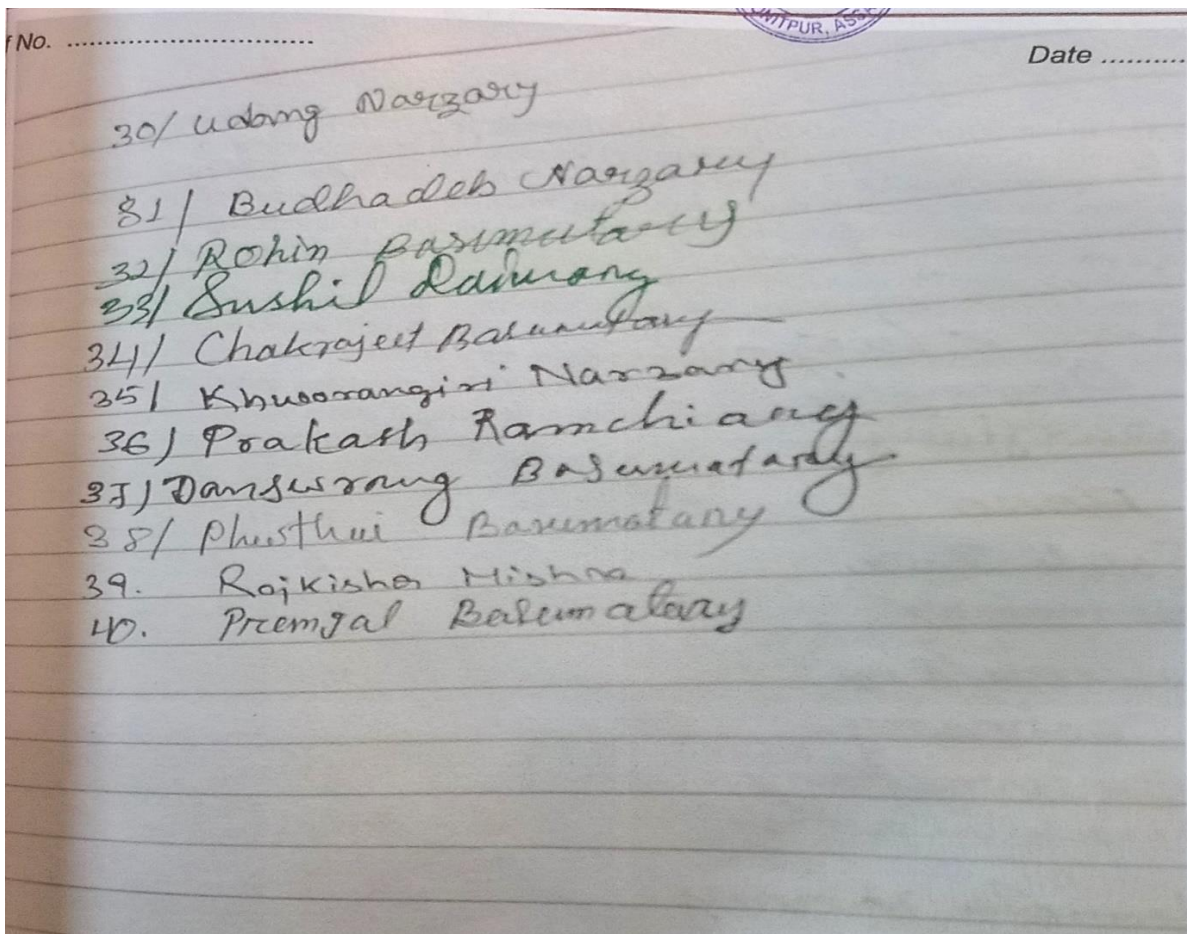 f No. ..............................
ONITPUR, ASS
Date ..........
30/ Udang Narzary
31/ Budhadeb Narzary
32/ Rohin Basumatary
33/ Sushil Daimary
34/ Chakrajeet Basumatary
35/ Khwrangiri Narzary
36) Prakash Ramchiary
37) Danswrang Basumatary
38/ Phusthui Basumatary
39. Rajkishor Mishra
40. Premjal Basumatary